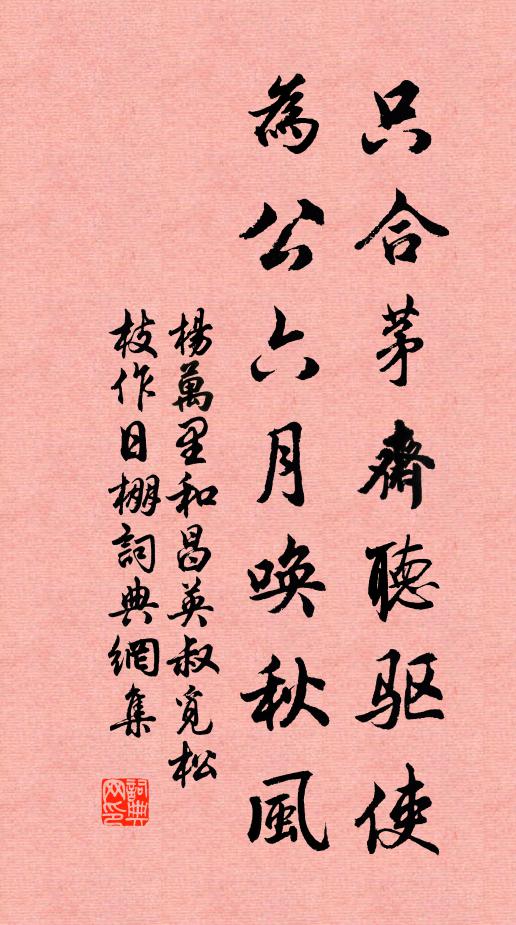 只合茅齋聽驱使
為公六月喚秋風
楊萬里和昌英叔覓松
枝作日棚詞典網集
詞典
网印